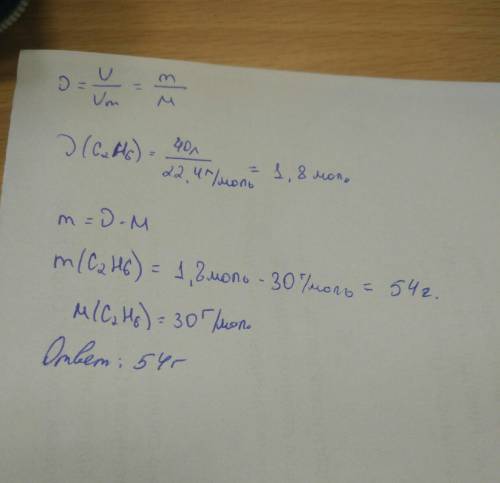 υ = V/Vm = m/M
υ(C₂H₆) = 40л/22,4г/моль = 1,8 моль
m = υ · M
m(C₂H₆) = 1,8моль · 30г/моль = 54г.
M(C₂H₆) = 30г/моль
Ответ: 54г